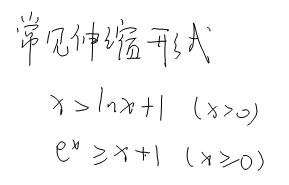 常见伸缩形式
x > lnx+1 (x>0)
eˣ ≥ x+1 (x≥0)